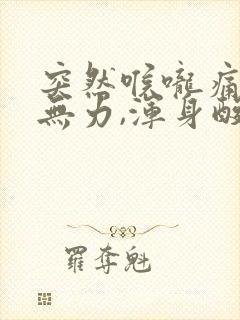 突然喉嚨痛
無力,渾身酸
羅奪魁